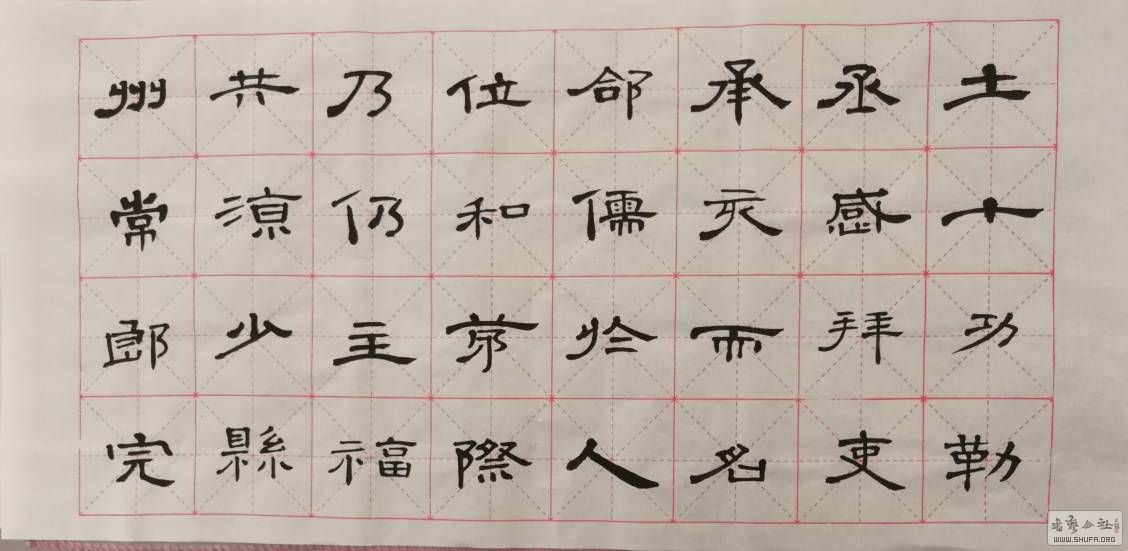 土十功勒
丞感拜吏
承而名
郃儒於人
位和際
乃仍主福
共涼少縣
州常郎完
书艺公社
WWW.SHUFA.ORG